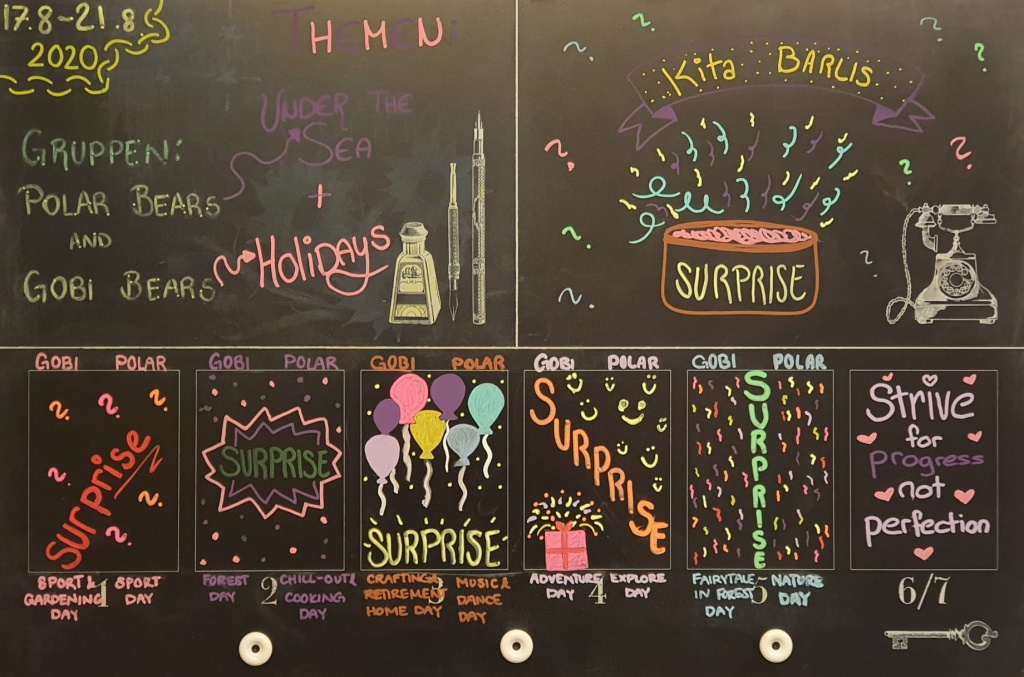 17.8-21.8
2020
THEMEN:
UNDER THE
SEA
+
HOLIDAYS
GRUPPEN:
POLAR BEARS
AND
GOBI BEARS
Kita BÄRLIS
SURPRISE
GOBI POLAR
Surprise
SPORT & GARDENING DAY
SPORT DAY
1
GOBI POLAR
SURPRISE
FOREST DAY
CHILL-OUT & COOKING DAY
2
GOBI POLAR
SURPRISE
CRAFTING & RETIREMENT HOME DAY
MUSIC & DANCE DAY
3
GOBI POLAR
SURPRISE
ADVENTURE DAY
EXPLORE DAY
4
GOBI POLAR
SURPRISE
FAIRYTALE IN FOREST DAY
NATURE DAY
5
Strive
for
progress
not
perfection
6/7